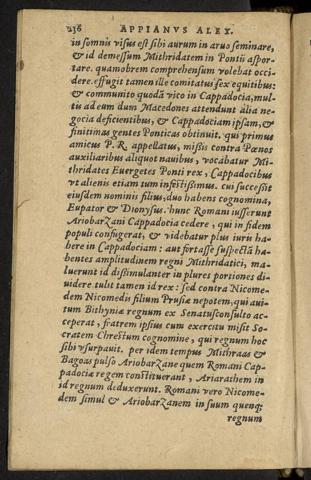 236 APPIANVS ALEX.
in somnis visus est sibi aurum in aruo seminare,
& id demessum Mithridatem in Pontū aspor-
tare. quamobrem comprehensum volebat occi
dere. effugit tamen ille comitatus sex equitibus:
& communito quodā vico in Cappadocia, mul-
tis ad eum dum Macedones attendunt alia ne-
gocia deficientibus, & Cappadociam ipsam, &
finitimas gentes Ponticas obtinuit, qui primus
amicus P. R. appellatus, missis contra Pœnos
auxiliaribus aliquot nauibus, vocabatur Mi-
thridates Euergetes Ponti rex, Cappadocibus
vt alienis etiam tum infestissimus. cui successit
eiusdem nominis filius, duo habens cognomina,
Eupator & Dionysus. hunc Romani iusserunt
Ariobarzani Cappadocia cedere, qui in fidem
populi confugerat, & videbatur plus iuris ha-
bere in Cappadociam: aut fortasse suspectā ha-
bentes amplitudinem regni Mithridatici, ma-
luerunt id dissimulanter in plures portiones di-
uidere tulit tamen id rex: sed contra Nicome-
dem Nicomedis filium Prusiæ nepotem, qui aui-
tum Bithyniæ regnum ex Senatusconsulto ac-
ceperat, fratrem ipsius cum exercitu misit So-
cratem Chrestum cognomine, qui regnum hoc
sibi vsurpauit. per idem tempus Mithraas &
Bagoas pulso Ariobarzane quem Romani Cap-
padociæ regem constituerant, Ariarathem in
id regnum deduxerunt. Romani vero Nicome-
dem simul & Ariobarzanem in suum quenq;
regnum